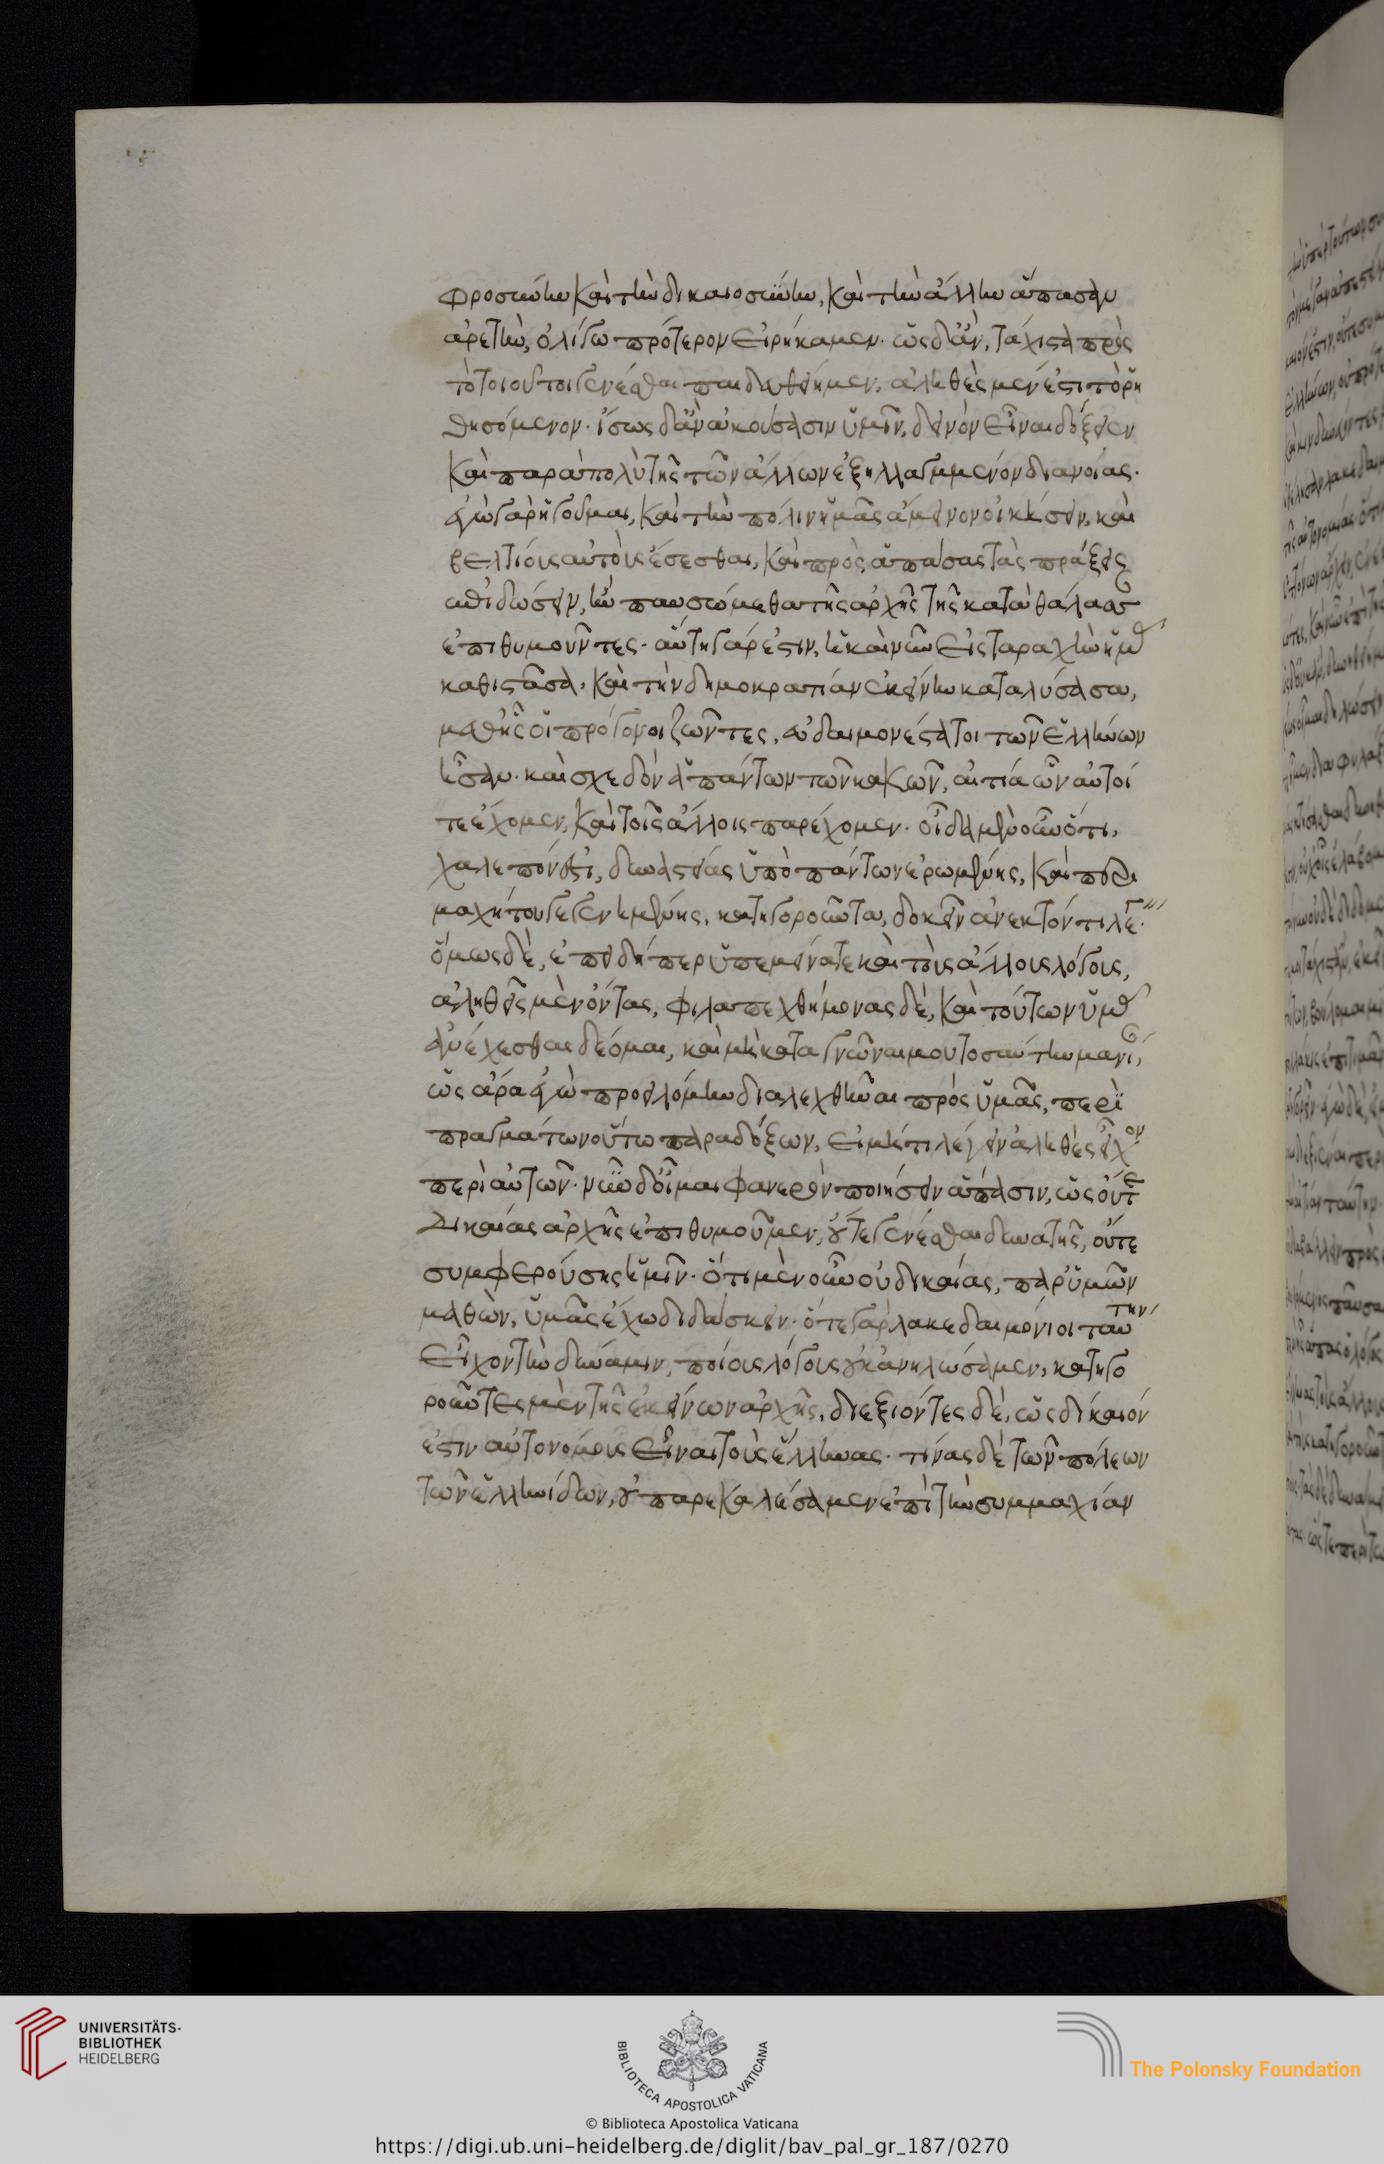 φροσύνην καὶ τὴν δικαιοσύνην, καὶ τὴν ἄλλην ἅπασαν
ἀρετὴν, ὀλίγω πρότερον εἰρήκαμεν. ὡς δ' ἂν, τάχιστα πρὸς
τὸ τοιοῦτοι γενέσθαι παιδευθεῖημεν, ἀληθὲς μέν ἐστι τὸ ῥη
θησόμενον. ἴσως δ' ἂν ἀκούσασιν ὑμῖν, δεινὸν εἶναι δόξειεν
καὶ παραπολὺ τῆς τῶν ἄλλων ἐξηλλαγμμενον διανοίας.
ἐγὼ γὰρ ἡγοῦμαι, καὶ τὴν πόλιν ἡμᾶς ἄμεινον οἰκήσειν, καὶ
βελτίοις αὐτοὺς ἔσεσθαι, καὶ πρὸς ἁπάσας τὰς πράξεις
ἐπιδώσειν, ἢν παυσώμεθα τῆς ἀρχῆς τῆς κατὰ θάλασσ
ἐπιθυμοῦντες. αὕτη γάρ ἐστιν, ἡ καὶ νῦν εἰς ταραχὴν ἡμᾶς
καθιστᾶσα, καὶ τὴν δημοκρατίαν ἐκείνην καταλύσασα,
μεθ' ἧς οἱ πρόγονοι ζῶντες, εὐδαιμονέστατοι τῶν ἑλλήνων
ἦσαν. καὶ σχεδὸν ἁπάντων τῶν κακῶν, αἰτία ὧν αὐτοί
τε ἔχομεν, καὶ τοῖς ἄλλοις παρέχομεν. οἶδα μὲν οὖν ὅτι,
χαλεπόν ἐστι, δυναστείας ὑπὸ πάντων ἐρωμένης, καὶ περι
μαχήτου γεγενημένης, κατηγοροῦντα, δοκεῖν ἀνεκτόν τι λέγ.
ὅμως δὲ, ἐπειδήπερ ὑπεμείνατε καὶ τοὺς ἄλλους λόγους,
ἀληθεῖς μὲν ὄντας, φιλαπεχθήμονας δὲ, καὶ τούτων ὑμᾶς
ἀνέχεσθαι δέομαι, καὶ μὴ καταγνῶναί μου τοσαύτην μανί,
ὡς ἄρα ἐγὼ προειλόμην διαλεχθῆναι πρὸς ὑμᾶς, περὶ
πραγμάτων οὕτω παραδόξων, εἰ μή τι λέγειν ἀληθὲς εἶχον
περὶ αὐτῶν. νῦν δ' οἶμαι φανερὸν ποιήσειν ἅπασιν, ὡς οὔτε
δικαίας ἀρχῆς ἐπιθυμοῦμεν, οὔτε γενέσθαι δυνατῆς, οὔτε
συμφερούσης ἡμῖν. ὅτι μὲν οὖν οὐ δικαίας, παρ' ὑμῶν
μαθὼν, ὑμᾶς ἔχω διδάσκειν. ὅτε γὰρ λακεδαιμόνιοι ταύτην
εἶχον τὴν δύναμιν, ποίους λόγους οὐκ ἀνηλώσαμεν, κατηγο
ροῦντες μὲν τῆς ἐκείνων ἀρχῆς, διεξιόντες δὲ, ὡς δίκαιόν
ἐστιν αὐτονόμους εἶναι τοὺς ἕλληνας. τίνας δὲ τῶν πόλεων
τῶν ἑλληνίδων, οὐ παρεκαλέσαμεν ἐπὶ τὴν συμμαχίαν
UNIVERSITÄTS-
BIBLIOTHEK
HEIDELBERG
BIBLIOTECA APOSTOLICA VATICANA
The Polonsky Foundation
© Biblioteca Apostolica Vaticana
https://digi.ub.uni-heidelberg.de/diglit/bav_pal_gr_187/0270